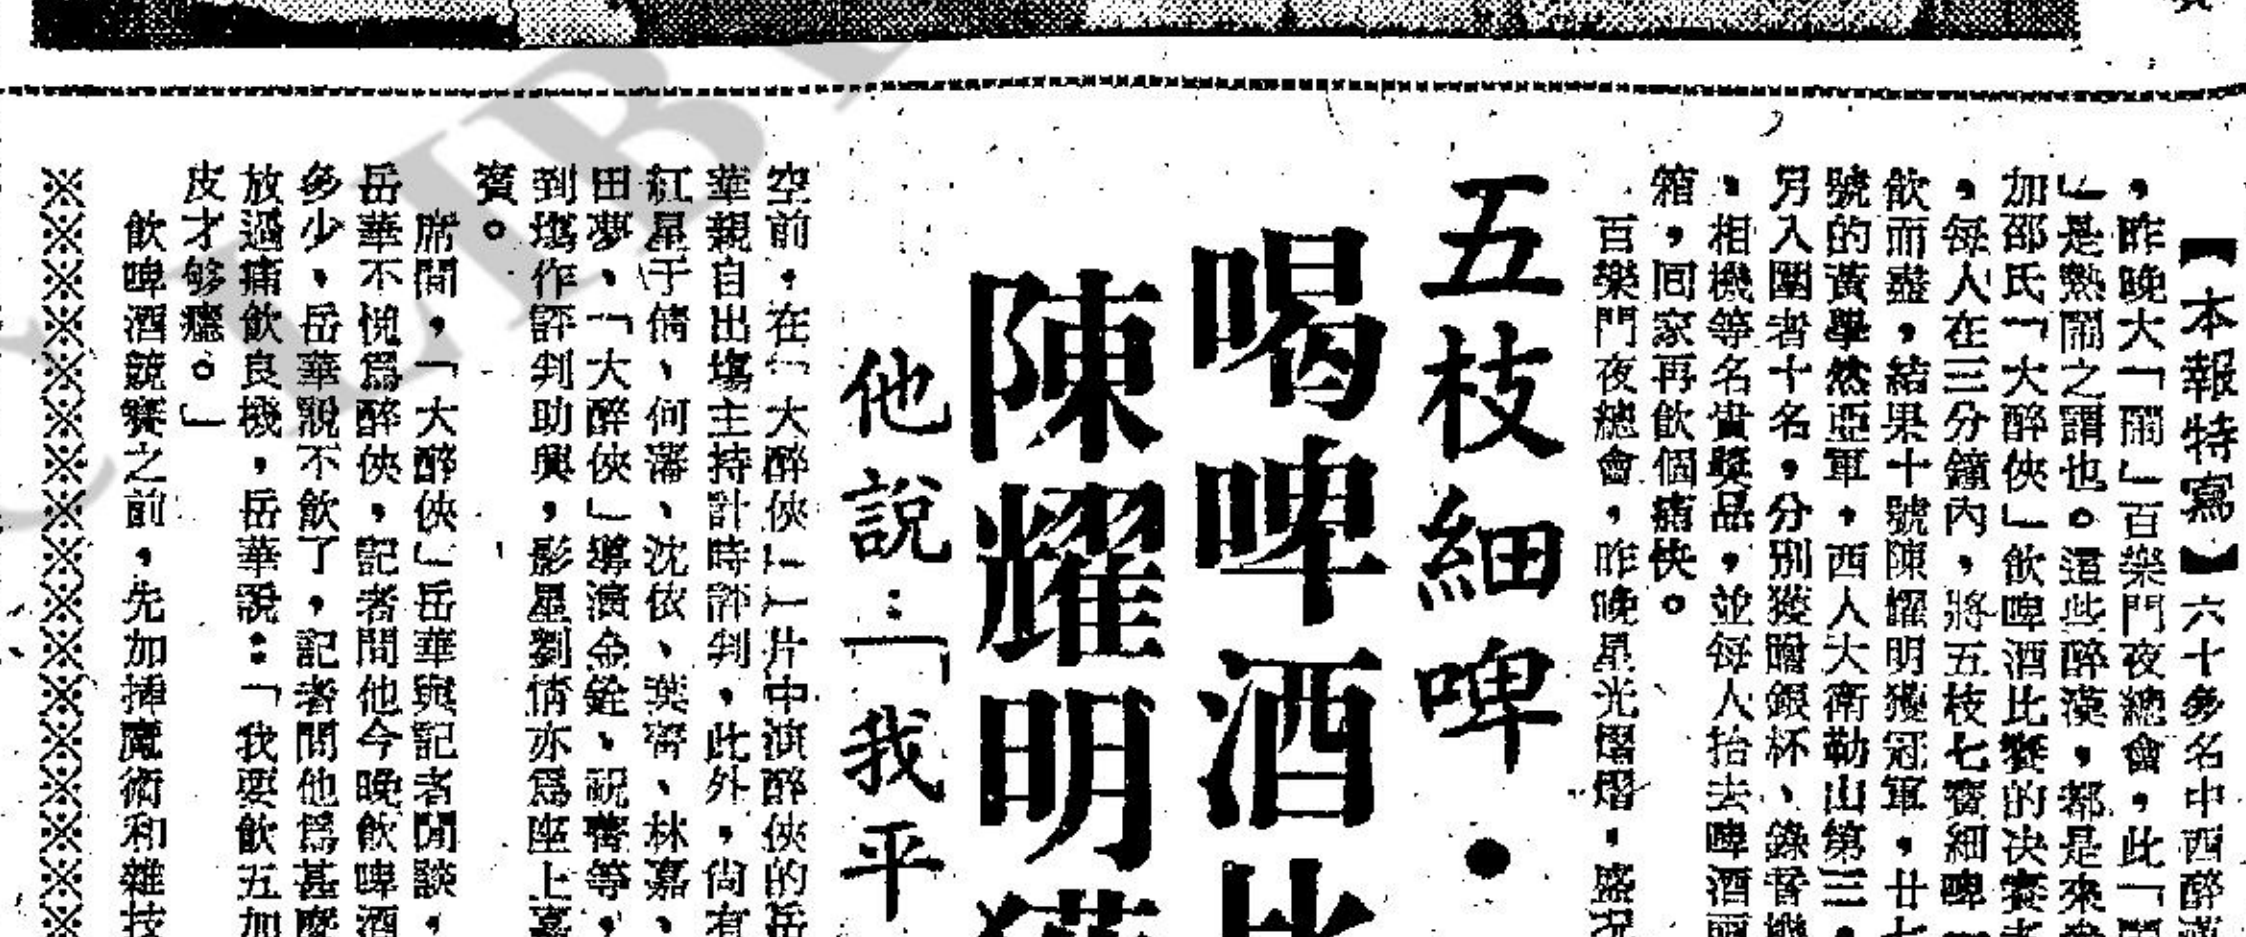 【本報特寫】六十多名中西醉漢
，昨晚大「鬧」百樂門夜總會，此「鬧
」是熱鬧之謂也。這些醉漢，都是來參
加邵氏「大醉俠」飲啤酒比賽的決賽者
，每人在三分鐘內，將五枝七寶細啤一
飲而盡，結果十號陳耀明獲冠軍，廿七
號的黃學然亞軍，西人大衛勒山第三，
另入圍者十名，分別獲贈銀杯、錄音機
、相機等名貴獎品，並每人抬去啤酒兩
箱，回家再飲個痛快。
百樂門夜總會，昨晚星光熠熠，盛況
五枝細啤·
喝啤酒比
陳耀明獲
他說：「我平
空前，在「大醉俠」一片中演醉俠的岳
華親自出場主持計時評判，此外，尚有
紅星于倩、何藩、沈依、葉霄、林嘉、
田夢、「大醉俠」導演金銓、祝菁等，
到場作評判助興，影星劉情亦爲座上嘉
賓。
席間，「大醉俠」岳華與記者閒談，
岳華不愧爲醉俠，記者問他今晚飲啤酒
多少，岳華說不飲了，記者問他爲甚麼
放過痛飲良機，岳華說：「我要飲五加
皮才够癮。」
飲啤酒競賽之前，先加揷魔術和雜技